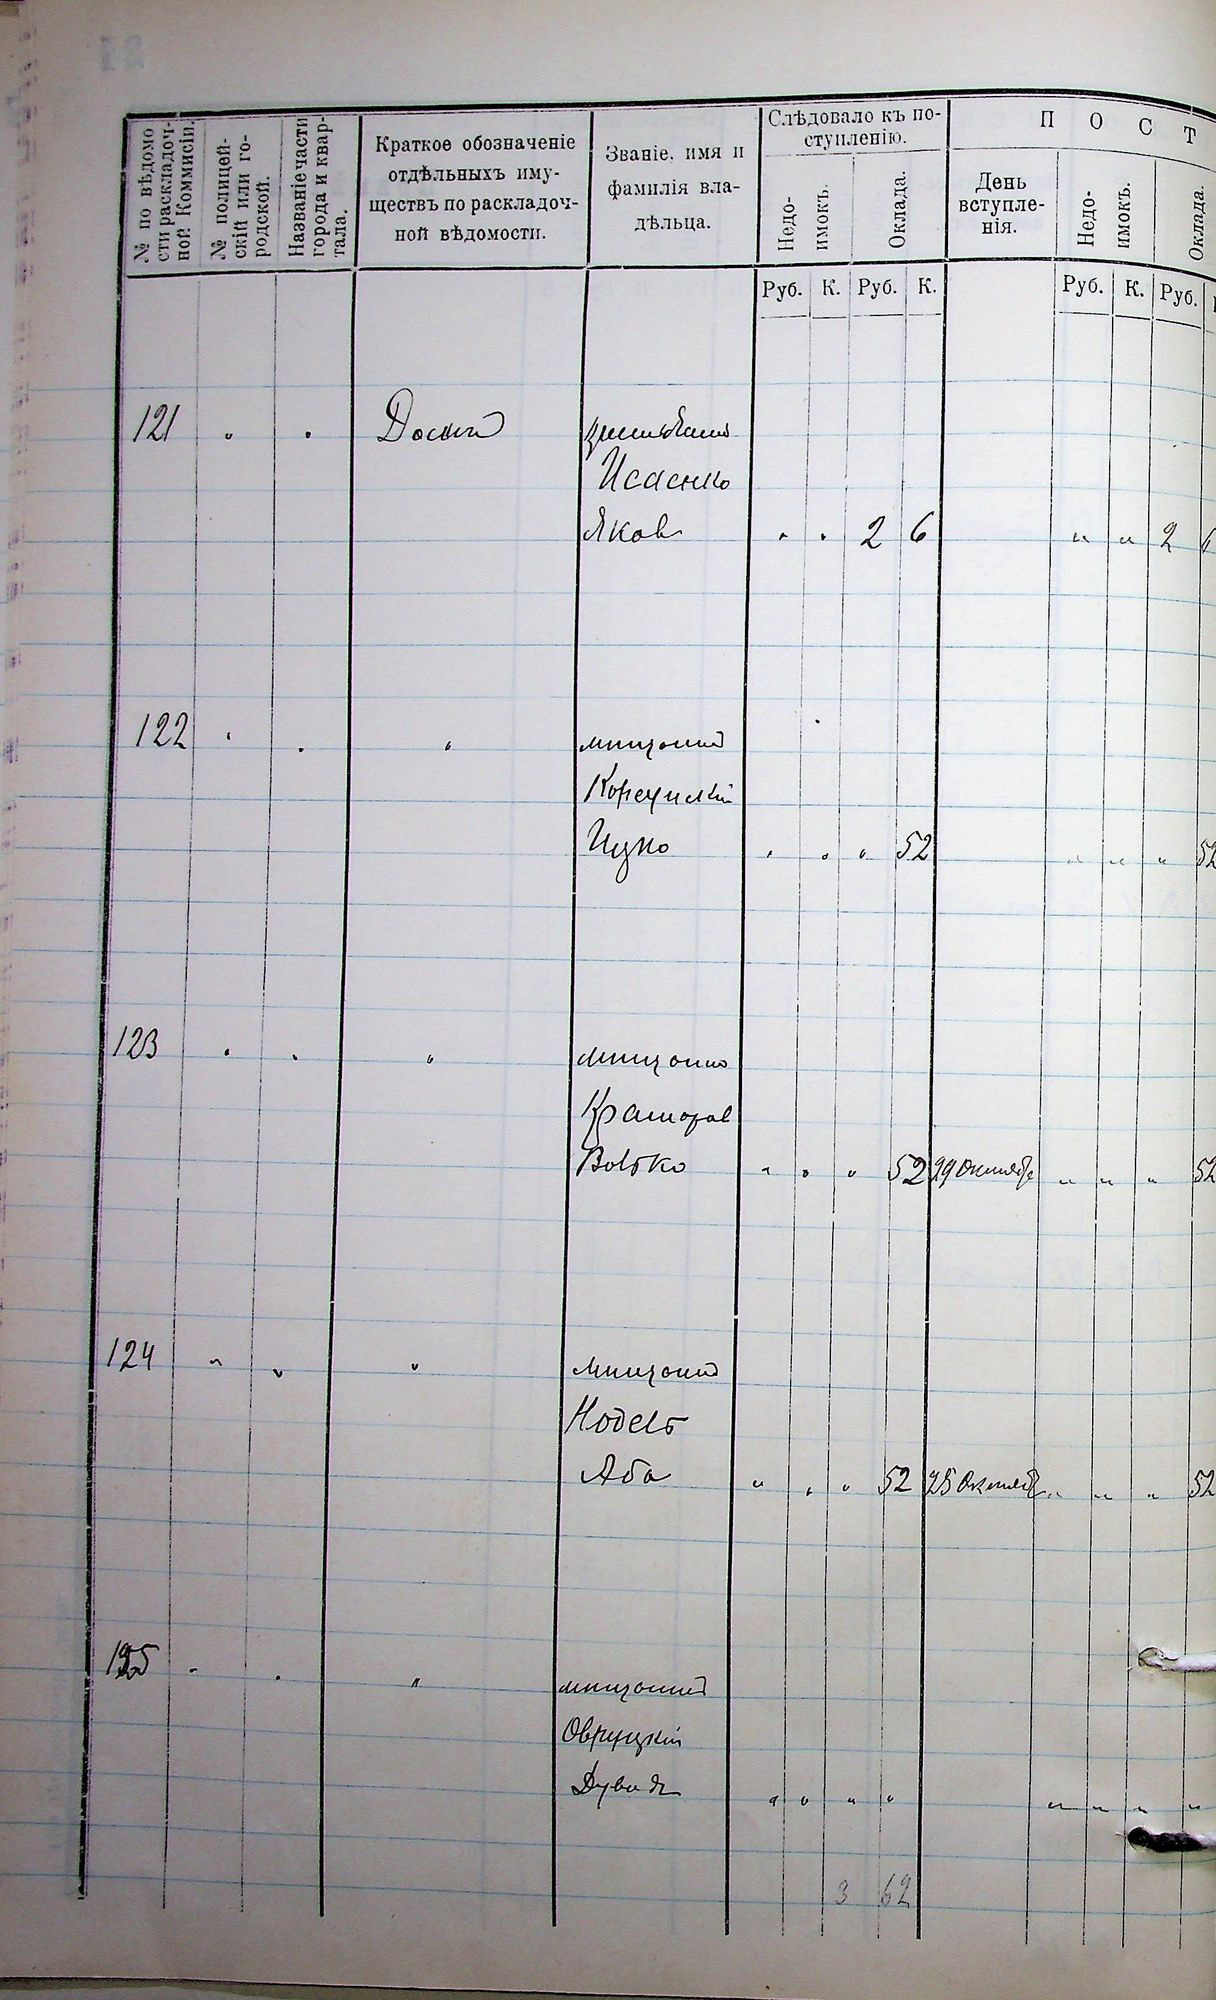 № по вѣдомо
сти раскладоч-
ной Коммисіи.
№ полицей-
скій или го-
родской.
Названіе части
города и квар-
тала.
Краткое обозначеніе
отдѣльныхъ иму-
ществъ по раскладоч-
ной вѣдомости.
Званіе, имя и
фамилія вла-
дѣльца.
Слѣдовало къ по-
ступленію.
Недо-
имокъ.
Оклада.
П О С Т
День
вступле-
нія.
Недо-
имокъ.
Оклада.
Руб. К. Руб. К. Руб. К. Руб.
121
Исаенко
Яковъ 2 6 2
122 мищанинъ
Корсунскій
Ицко 52 52
123 мищанинъ
Краморов
Волько 52 29 Октября 52
124 мищанинъ
Нодель
Аба 52 25 Октября 52
мищанинъ
Овруцкій
Дувидъ
3 62